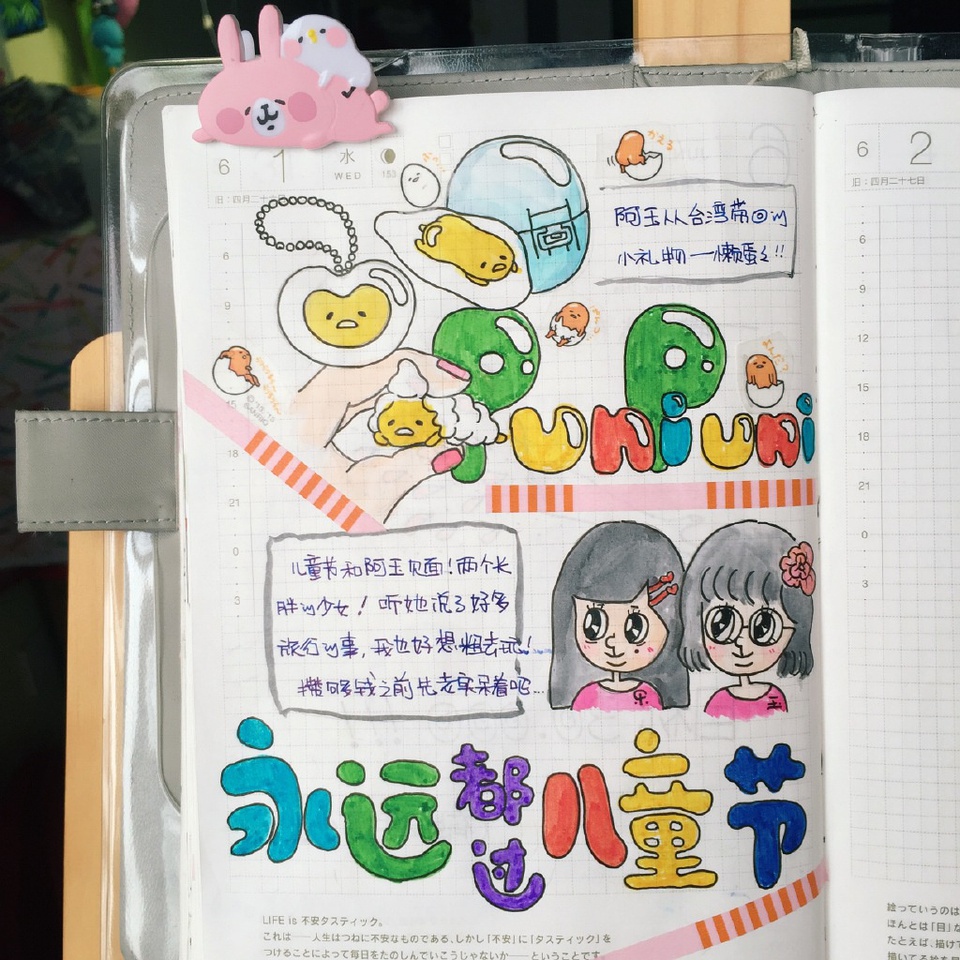 6 1 水 WED 153
6 2
旧：四月二十六日
旧：四月二十七日
阿玉从台湾带回的
小礼物——懒蛋蛋!!
6
9
15
18
21
0
3
6
9
12
15
18
21
0
3
Puni Puni
儿童节和阿玉见面！两个长
胖的少女！听她说了好多
旅行的事，我也好想粗去玩！
攒够钱之前先老实呆着吧...
永远都过儿童节
LIFE is 不安タスティック。
これは——人生はつねに不安なものである、しかし「不安」に「タスティック」を
つけることによって毎日をたのしんでいこうじゃないか——ということです。
絵っていうのは
ほんとは「目」な
たとえば、描けて
描いてる絵を見